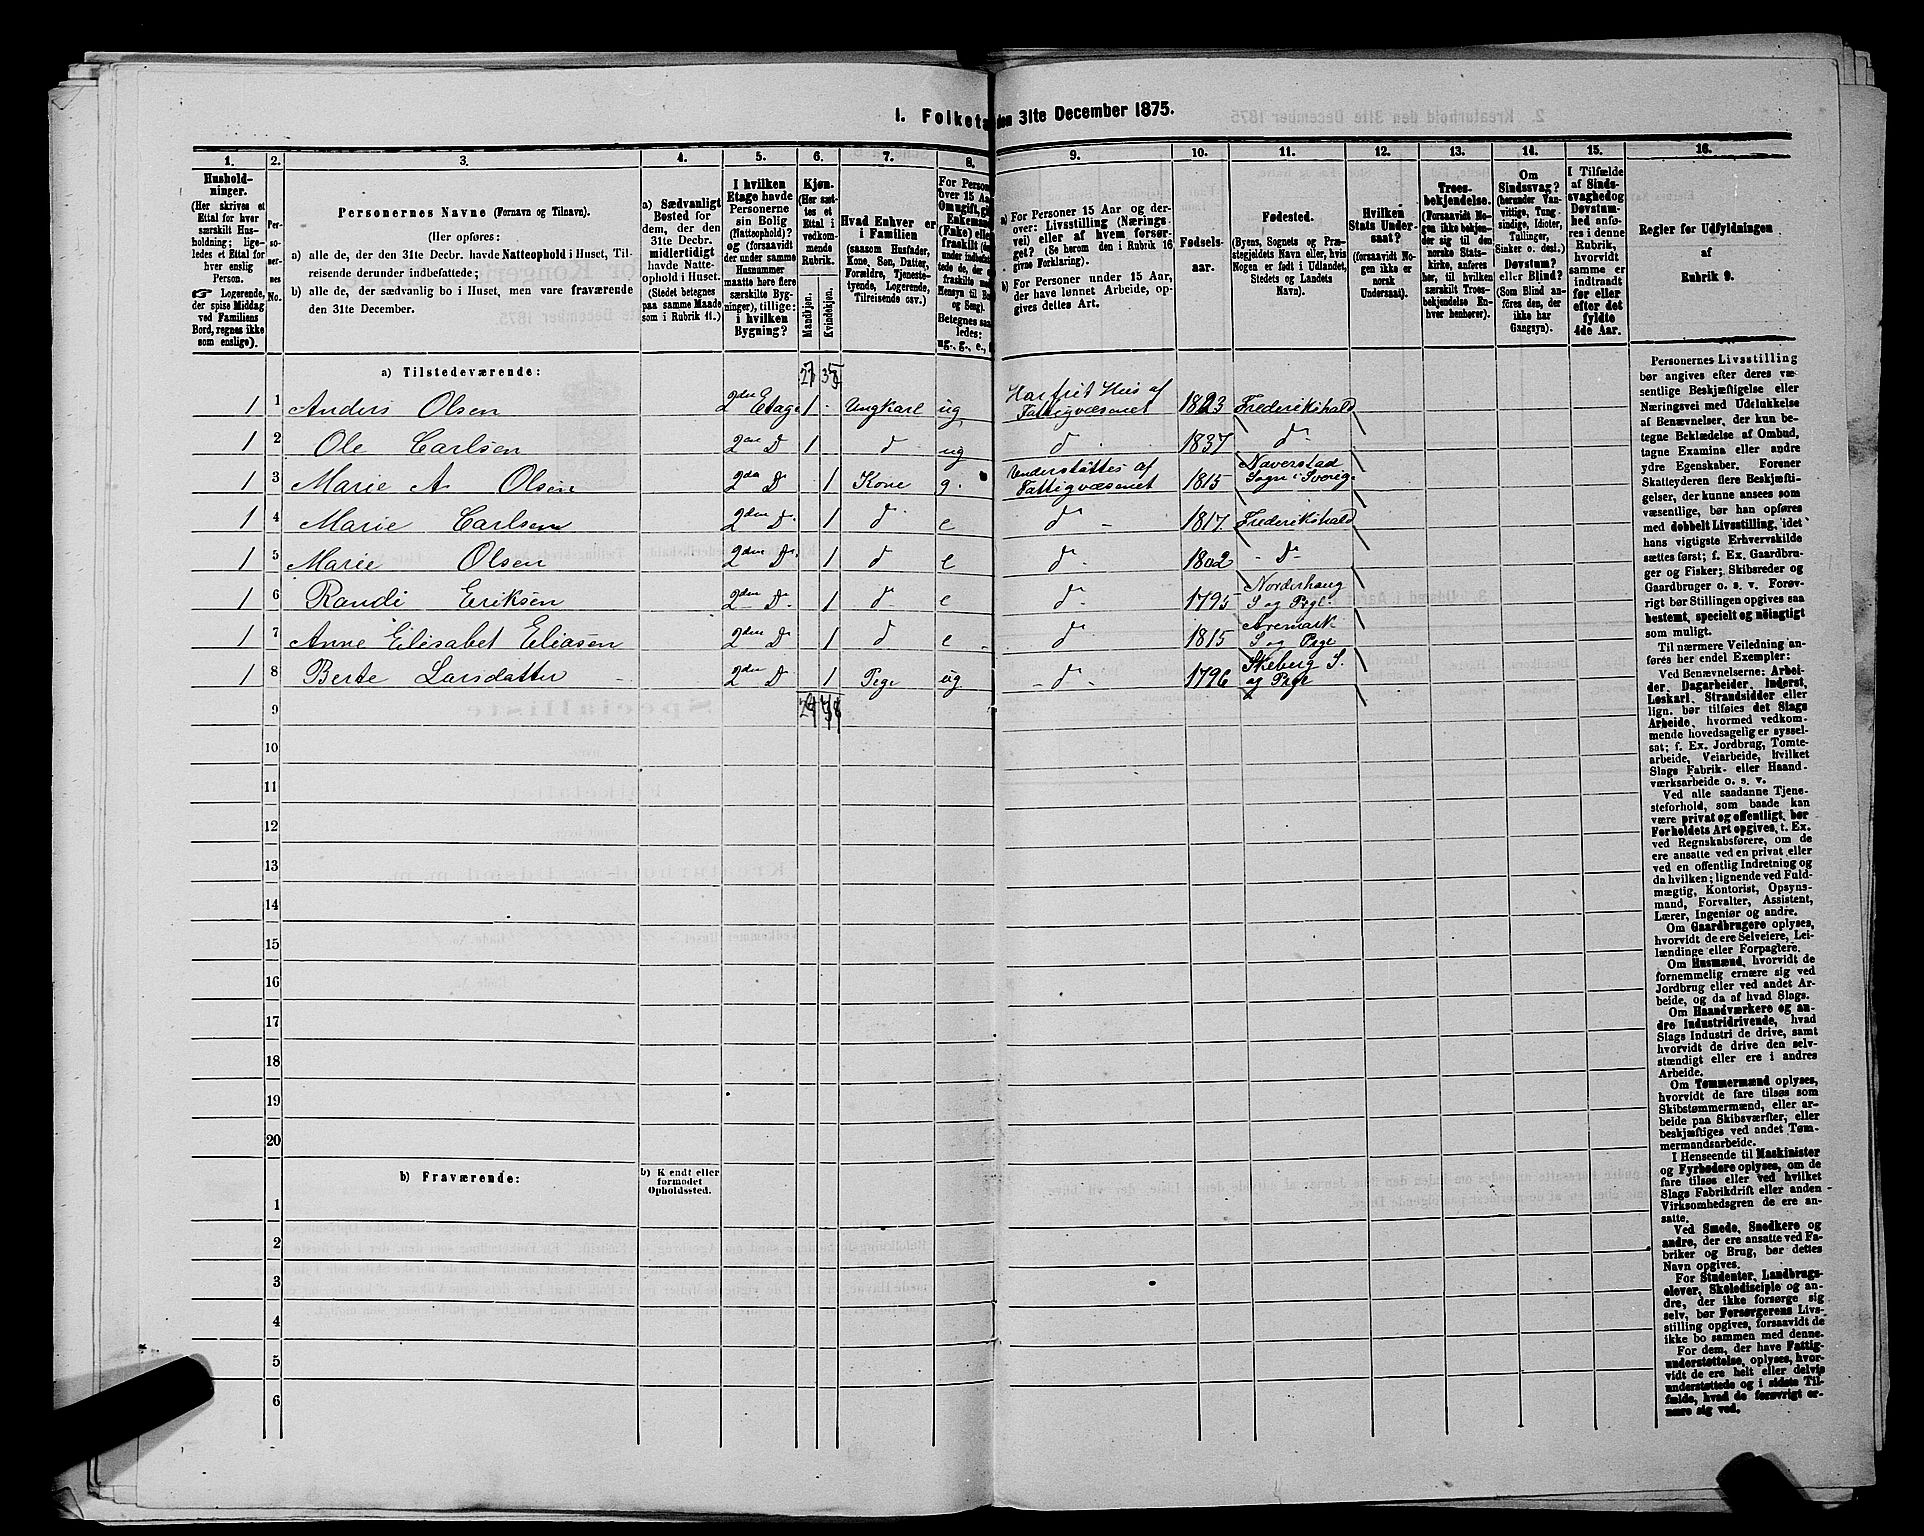 1. Folketæ
den 31te December 1875.
1. 2. 3. 4. 5. 6. 7. 8. 9. 10. 11. 12. 13. 14. 15. 16.
Hushold-
ninger.
(Her skrives et
Ettal for hver
særskilt Hus-
holdning; lige-
ledes et Ettal for
hver enslig
Person.
☞ Logerende,
der spise Middag
ved Familiens
Bord, regnes ikke
som enslige).
Per-
so-
ner-
nes
No.
Personernes Navne (Fornavn og Tilnavn).
(Her opføres:
a) alle de, der den 31te Decbr. havde Natteophold i Huset, Til-
reisende derunder indbefattede;
b) alle de, der sædvanlig bo i Huset, men vare fraværende
den 31te December.
a) Sædvanligt
Bosted for
dem, der den
31te Decbr.
midlertidigt
havde Natte-
ophold i Huset.
(Stedet betegnes
paa samme Maade
som i Rubrik 11.)
I hvilken
Etage havde
Personerne
sin Bolig
(Natteophold)?
og (forsaavidt
der under samme
Husnummer
maatte høre flere
særskilte Byg-
ninger), tillige:
i hvilken
Bygning?
Kjøn.
(Her sæt-
tes et
Ettal i
vedkom-
mende
Rubrik.
Mandkjøn.
Kvindekjøn.
Hvad Enhver er
i Familien
(saasom Husfader,
Kone, Søn, Datter,
Forældre, Tjeneste-
tyende, Logerende,
Tilreisende osv.)
For Person
over 15 Aar
Om ugift, gi
Enkeman
(Enke) elle
fraskilt (de
under indbefat
tede de, der
fraskilte me
Hensyn til Bo
og Seng).
Betegnes saa
ledes:
ug., g., e.,
a) For Personer 15 Aar og der-
over: Livsstilling (Nærings-
vei) eller af hvem forsør-
get? (Se herom den i Rubrik 16
givne Forklaring).
b) For Personer under 15 Aar,
der have lønnet Arbeide, op-
gives dettes Art.
Fødsels-
aar.
Fødested.
(Byens, Sognets og Præ-
stegjeldets Navn eller, hvis
Nogen er født i Udlandet,
Stedets og Landets
Navn).
Hvilken
Stats Under-
saat?
(forsaavidt No-
gen ikke er
norsk
Undersaat).
Troes-
bekjendelse.
(Forsaavidt No-
gen ikke bekjen-
der sig til den
norske Stats-
kirke, anføres
her, til hvilken
særskilt Troes-
bekjendelse En-
hver henhører).
Om
Sindssvag?
(herunder Van-
vittige, Tung-
sindige, Idioter,
Tullinger,
Sinker o. desl.)
Døvstum?
eller Blind?
(Som Blind an-
føres den, der
ikke har
Gangsyn).
I Tilfælde
af Sinds-
svaghed og
Døvstum-
hed anfø-
res i denne
Rubrik,
hvorvidt
samme er
indtraadt
før eller
efter det
fyldte
4de Aar.
Regler for Udfyldningen
af
Rubrik 9.
a) Tilstedeværende:
1 1 Anders Olsen 2den Etage 1 Ungkarl ug Har frit Hus af Fattigvæsenet 1823 Frederikshald
1 2 Ole Carlsen 2den D 1 d ug d 1837 d
1 3 Marie A Olsen 2den D 1 Kone g. Understøttes af Fattigvæsenet 1815 Naverstad Sogn i Sverig
1 4 Marie Carlsen 2den D 1 d e d 1817 Frederikshald
1 5 Marie Olsen 2den D 1 d e d 1802 d
1 6 Randi Eriksen 2den D. 1 d e d 1795 Norderhaug S og Prgl.
1 7 Anne Elisabet Eliasen 2den D 1 d e d 1815 Aremark S og Prgl
1 8 Berte Larsdatter 2den D 1 Pige ug d 1796 Skeberg S. og Prgl
9
10
11
12
13
14
15
16
17
18
19
20
b) Fraværende:
b) Kjendt eller
formodet
Opholdssted.
1
2
3
4
5
6
Personernes Livsstilling
bør angives efter deres væ-
sentlige Beskjæftigelse eller
Næringsvei med Udelukkelse
af Benævnelser, der kun be-
tegne Beklædelse af Ombud,
tagne Examina eller andre
ydre Egenskaber. Forener
Skatteyderen flere Beskjæfti-
gelser, der kunne ansees som
væsentlige, bør han opføres
med dobbelt Livsstilling, idet
hans vigtigste Erhvervskilde
sættes først; f. Ex. Gaardbru-
ger og Fisker; Skibsreder og
Gaardbruger o. s. v. Forøv-
rigt bør Stillingen opgives saa
bestemt, specielt og nøiagtigt
som muligt.
Til nærmere Veiledning an-
føres her endel Exempler:
Ved Benævnelserne: Arbei-
der, Dagarbeider, Inderst,
Løskarl, Strandsidder eller
lign. bør tilføies det Slags
Arbeide, hvormed vedkom-
mende hovedsagelig er syssel-
sat; f. Ex. Jordbrug, Tomte-
arbeide, Veiarbeide, hvilket
Slags Fabrik- eller Haand-
værksarbeide o. s. v.
Ved alle saadanne Tjene-
steforhold, som baade kan
være privat og offentligt, bør
Forholdets Art opgives, t. Ex.
ved Regnskabsførere, om de
ere ansatte ved en privat eller
ved en offentlig Indretning og
da hvilken; lignende ved Fuld-
mægtig, Kontorist, Opsyns-
mand, Forvalter, Assistent,
Lærer, Ingeniør og andre.
Om Gaardbrugere oplyses,
hvorvidt de ere Selveiere, Lei-
lændinge eller Forpagtere.
Om Husmænd, hvorvidt de
fornemmelig ernære sig ved
Jordbrug eller ved andet Ar-
beide, og da af hvad Slags.
Om Haandværkere og an-
dre Industridrivende, hvad
Slags Industri de drive, samt
hvorvidt de drive den selv-
stændigt eller ere i andres
Arbeide.
Om Tømmermænd oplyses,
hvorvidt de fare tilsøs som
Skibstømmermænd, eller ar-
beide paa Skibsværfter, eller
beskjæftiges ved andet Tøm-
mermandsarbeide.
I Henseende til Maskinister
og Fyrbødere oplyses, om de
fare tilsøs eller ved hvilket
Slags Fabrikdrift eller anden
Virksomhedsgren de ere an-
satte.
Ved Smede, Snedkere og
andre, der ere ansatte ved Fa-
briker og Brug, bør dettes
Navn opgives.
For Studenter, Landbrugs-
elever, Skoledisciple og an-
dre, der ikke forsørge sig
selv, bør Forsørgerens Livs-
stilling opgives, forsaavidt de
ikke bo sammen med denne.
For dem, der have Fattig-
understøttelse, oplyses, hvor-
vidt de ere helt eller delvis
understøttede og i sidste Til-
fælde, hvad de forøvrigt er-
nære sig ved.